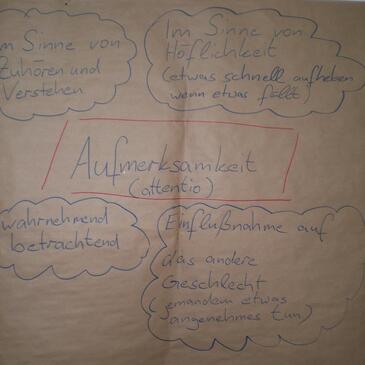 Im Sinne von
Zuhören und
Verstehen
Im Sinne von
Höflichkeit
(etwas schnell aufheben
wenn etwas fällt)
Aufmerksamkeit
(attentio)
wahrnehmend
betrachtend
Einflußnahme auf
das andere
Geschlecht
(jemandem etwas
angenehmes tun)